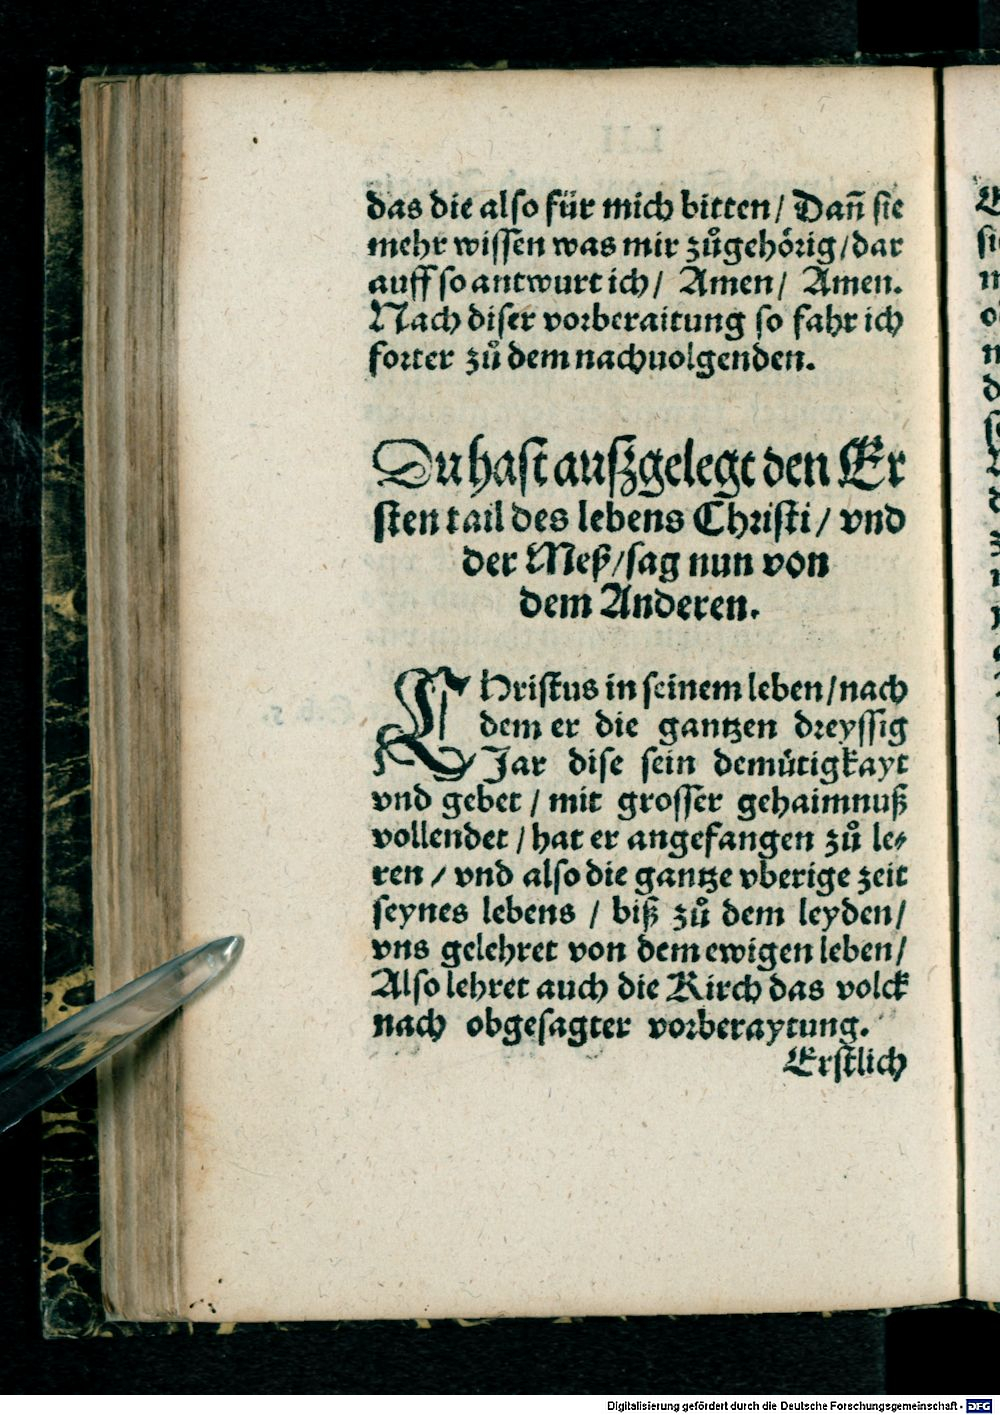 das die also für mich bitten / Dañ sie
mehr wissen was mir zůgehörig / dar
auff so antwurt ich / Amen / Amen.
Nach diser vorberaitung so fahr ich
forter zů dem nachuolgenden.
Du hast außgelegt den Er
sten tail des lebens Christi / vnd
der Meß / sag nun von
dem Anderen.
CHristus in seinem leben / nach
dem er die gantzen dreyssig
Jar dise sein demütigkayt
vnd gebet / mit grosser gehaimnuß
vollendet / hat er angefangen zů le-
ren / vnd also die gantze vberige zeit
seynes lebens / biß zů dem leyden /
vns gelehret von dem ewigen leben /
Also lehret auch die Kirch das volck
nach obgesagter vorberaytung.
Erstlich
Digitalisierung gefördert durch die Deutsche Forschungsgemeinschaft - DFG